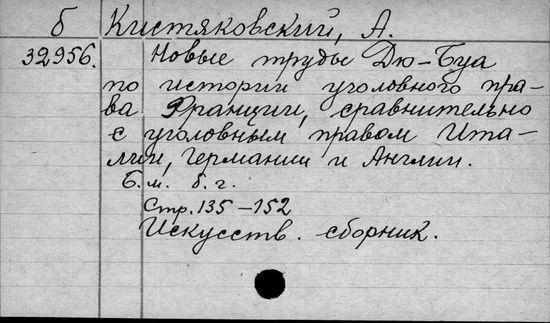 б Кистяковский, А.
32956. Новые труды Дю-Буа
по истории уголовного пра-
ва Франции, сравнительно
с уголовным правом Ита-
лии, Германии и Англии.
Б. м. б. г.
Стр. 135-152
Искусств. сборник.